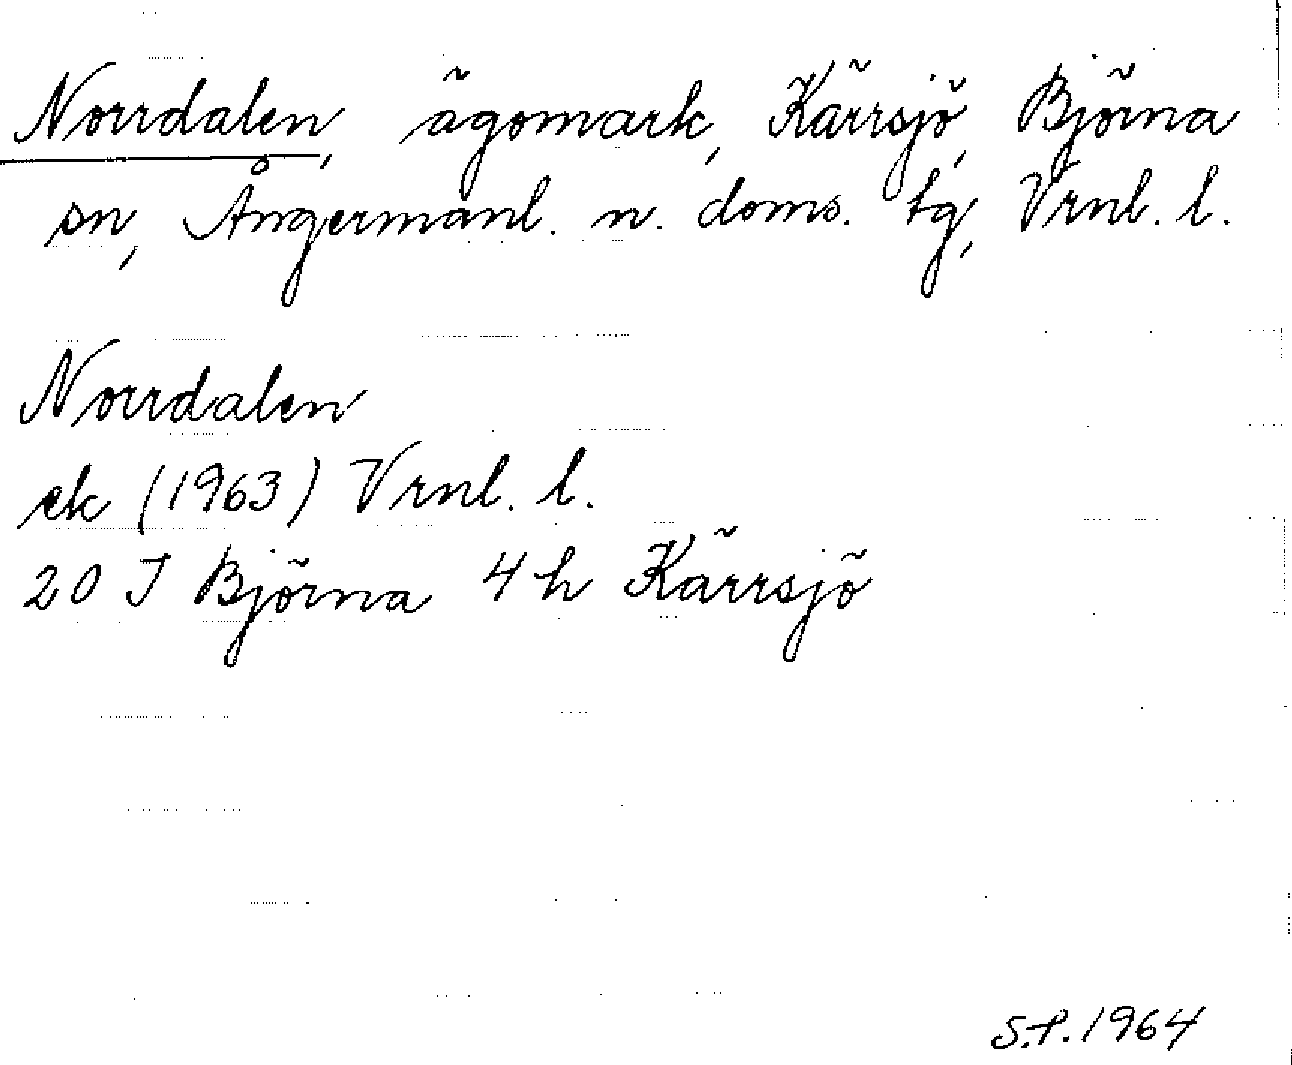 Norrdalen, ägomark, Kärrsjö, Björna
sn, Ångermanl. n. doms. tg, Vrnl. l.
Norrdalen
ek (1963) Vrnl. l.
20 J Björna 4 h Kärrsjö
S.P. 1964